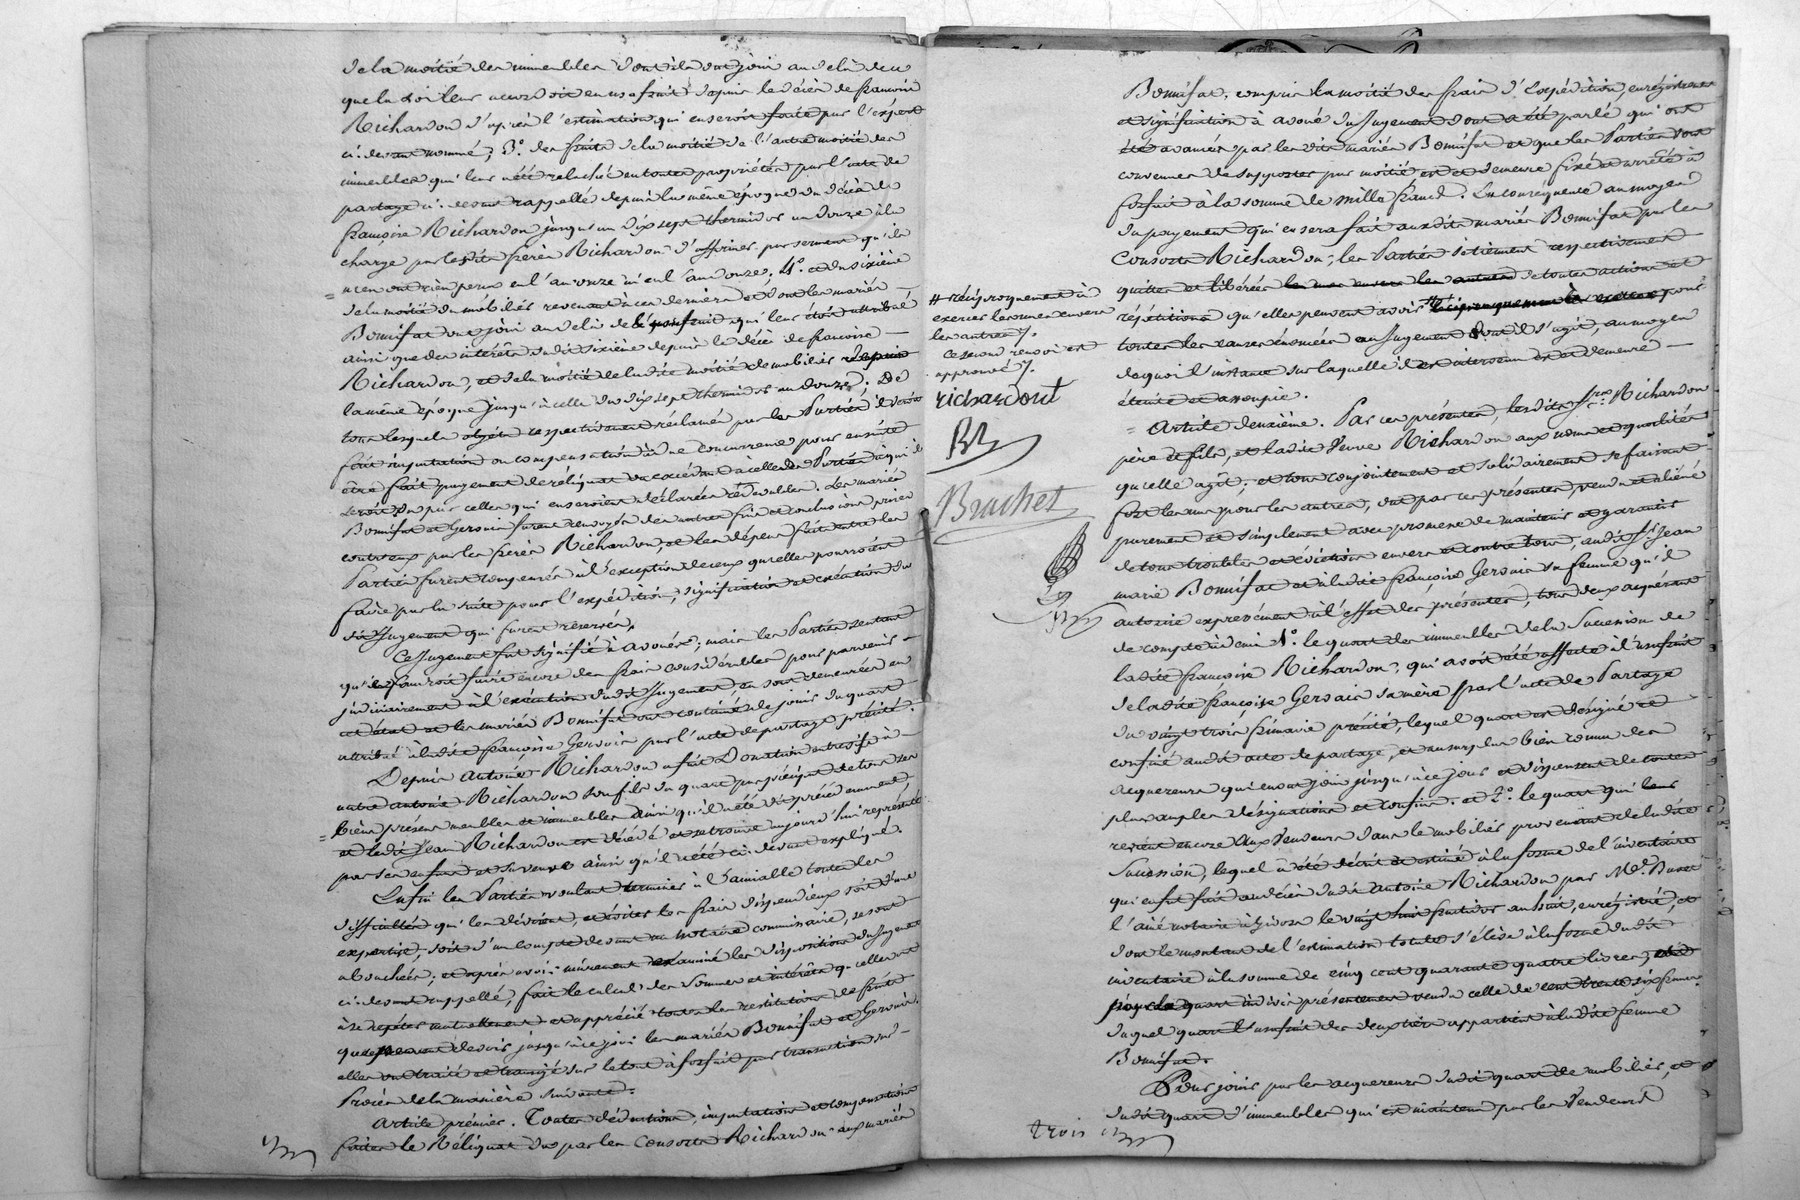 de la moitié des immeubles dont ils ont joui au delà de ce
que la loi leur accordoit en usufruit depuis le décès de françoise
Richardon d'après l'estimation qui en seroit faite par l'expert
ci-devant nommé; 3° des fruits de la moitié de l'autre moitié des
immeubles qui leur a été relaché en toute propriété par l'acte de
partage ci-dessus rappellé depuis la même époque du décès de
françoise Richardon jusqu'au dix sept thermidor an douze à la
charge par lesdits frères Richardon d'affirmer par serment qu'ils
n'en ont rien perçu en l'an onze ni en l'an douze. 4° et du sixième
de la moitié du mobilier revenant à ces derniers et dont les mariés
Bonnifat ont joui au delà de l'usufruit qui leur étoit attribué
ainsi que des intérêts dudit sixième depuis le décès de françoise
Richardon, et de la moitié de ladite moitié de mobilier depuis
la même époque jusqu'à celle du dix sept thermidor an douze. De
tous lesquels objets respectivement réclamés par les Parties il seroit
fait imputation ou compensation à due concurrence pour ensuite
être fait payement du réliquat ou excédant à celle des Parties à qui il
seroit dû par celles qui en seroient déclarées redevables. Les mariés
Bonnifat et Gervais furent renvoyés des autres fins et conclusions prises
contr'eux par les frères Richardon, et les dépens faits entre les
Parties furent compensés à l'exception de ceux qu'elles pourroient
faire par la suite pour l'expédition, signification et exécution du
dit Jugement qui furent réservés.
Ce Jugement fut signifié à avoués; mais les Parties sentant
qu'il faudroit faire encore des frais considérables pour parvenir
judiciairement à l'exécution dudit Jugement, en sont demeurées en
cet état et les mariés Bonnifat ont continué de jouir du quart
attribué à ladite françoise Gervais par l'acte de partage précité.
Depuis Antoine Richardon a fait Donation entre vifs à
autre antoine Richardon son fils du quart par préciput de tous ses
biens présens meubles et immeubles ainsi qu'il a été dit précédemment,
et ledit Jean Richardon est décédé et se trouve aujourd'hui représenté
par ses enfans et sa veuve ainsi qu'il a été ci-devant expliqué.
Enfin les Parties voulant terminer à l'amiable toutes les
difficultés qui les divisent, et éviter les frais dispendieux soit d'une
expertise, soit d'un compte devant un Notaire commissaire, se sont
abouchées, et après avoir mûrement examiné les dispositions du Jugement
ci-devant rappellé, fait le calcul des Sommes et intérêts qu'elles ont
à se répéter mutuellement et apprécié toutes les restitutions de fruits
que peuvent devoir jusqu'à ce jour les mariés Bonnifat et Gervais,
elles ont traité et transigé sur le tout à forfait par transaction sur
Procès de la manière suivante.
Article premier. Toutes déductions, imputations et compensations
faites le Réliquat dû par les Consorts Richardon aux mariés
Bonnifat, compris la moitié des frais d'expédition, enregistrement
et signification à avoué du Jugement dont a été parlé qui ont
été avancés par lesdits mariés Bonnifat et que les Parties sont
convenues de supporter par moitié est et demeure fixé et arrêté à
forfait à la somme de mille francs. En conséquence au moyen
du payement qui en sera fait auxdits mariés Bonnifat par les
Consorts Richardon, les Parties se tiennent respectivement
quittes et libérées de toutes actions et
répétitions qu'elles peuvent avoir # pour
toutes les causes énoncées au Jugement dont il s'agit, au moyen
de quoi l'instance sur laquelle il est intervenu est et demeure
éteinte et assoupie.
# réciproquement à
exercer les unes envers
les autres /.
Ce second renvoi est
approuvé /.
richardont
BR
Brachet
Article deuxième. Par ces présentes, lesdits Srs Richardon
père et fils, et ladite Veuve Richardon aux noms et qualités
qu'elle agit, et tous conjointement et solidairement se faisant
fort les uns pour les autres, ont par ces présentes vendu et aliéné
purement et simplement avec promesse de maintenir et garantir
de tous troubles et évictions envers et contre tous, audit Sr Jean
marie Bonnifat et à ladite françoise Gervais sa femme qu'il
autorise expressément à l'effet des présentes, tous deux acquérant
de compte à demi 1° le quart des immeubles de la Succession de
ladite françoise Richardon, qui avoit été affecté à l'usufruit
de ladite françoise Gervais sa mère par l'acte de Partage
du vingt trois frimaire précité, lequel quart est désigné et
confiné audit acte de partage, et au surplus bien connu des
acquereurs qui en ont joui jusqu'à ce jour et dispensent de toutes
plus amples désignations et confins. et 2° le quart qui leur
revient encore aux Vendeurs dans le mobilier provenant de ladite
Succession, lequel a été décrit et estimé à la forme de l'inventaire
qui en fut fait au décès dudit Antoine Richardon par Me
l'aîné notaire à Givors le vingt huit fructidor an huit, enregistré, et
dont le montant de l'estimation totale s'élève à la forme dudit
inventaire à la somme de cinq cent quarante quatre livres, et
pour le quart indivis présentement vendu celle de cent trente six francs
duquel quart l'usufruit des deux tiers appartient à ladite femme
Bonnifat.
Pour jouir par les acquereurs dudit quart de mobilier, et
dudit quart d'immeubles qui est maintenu par les Vendeurs
trois